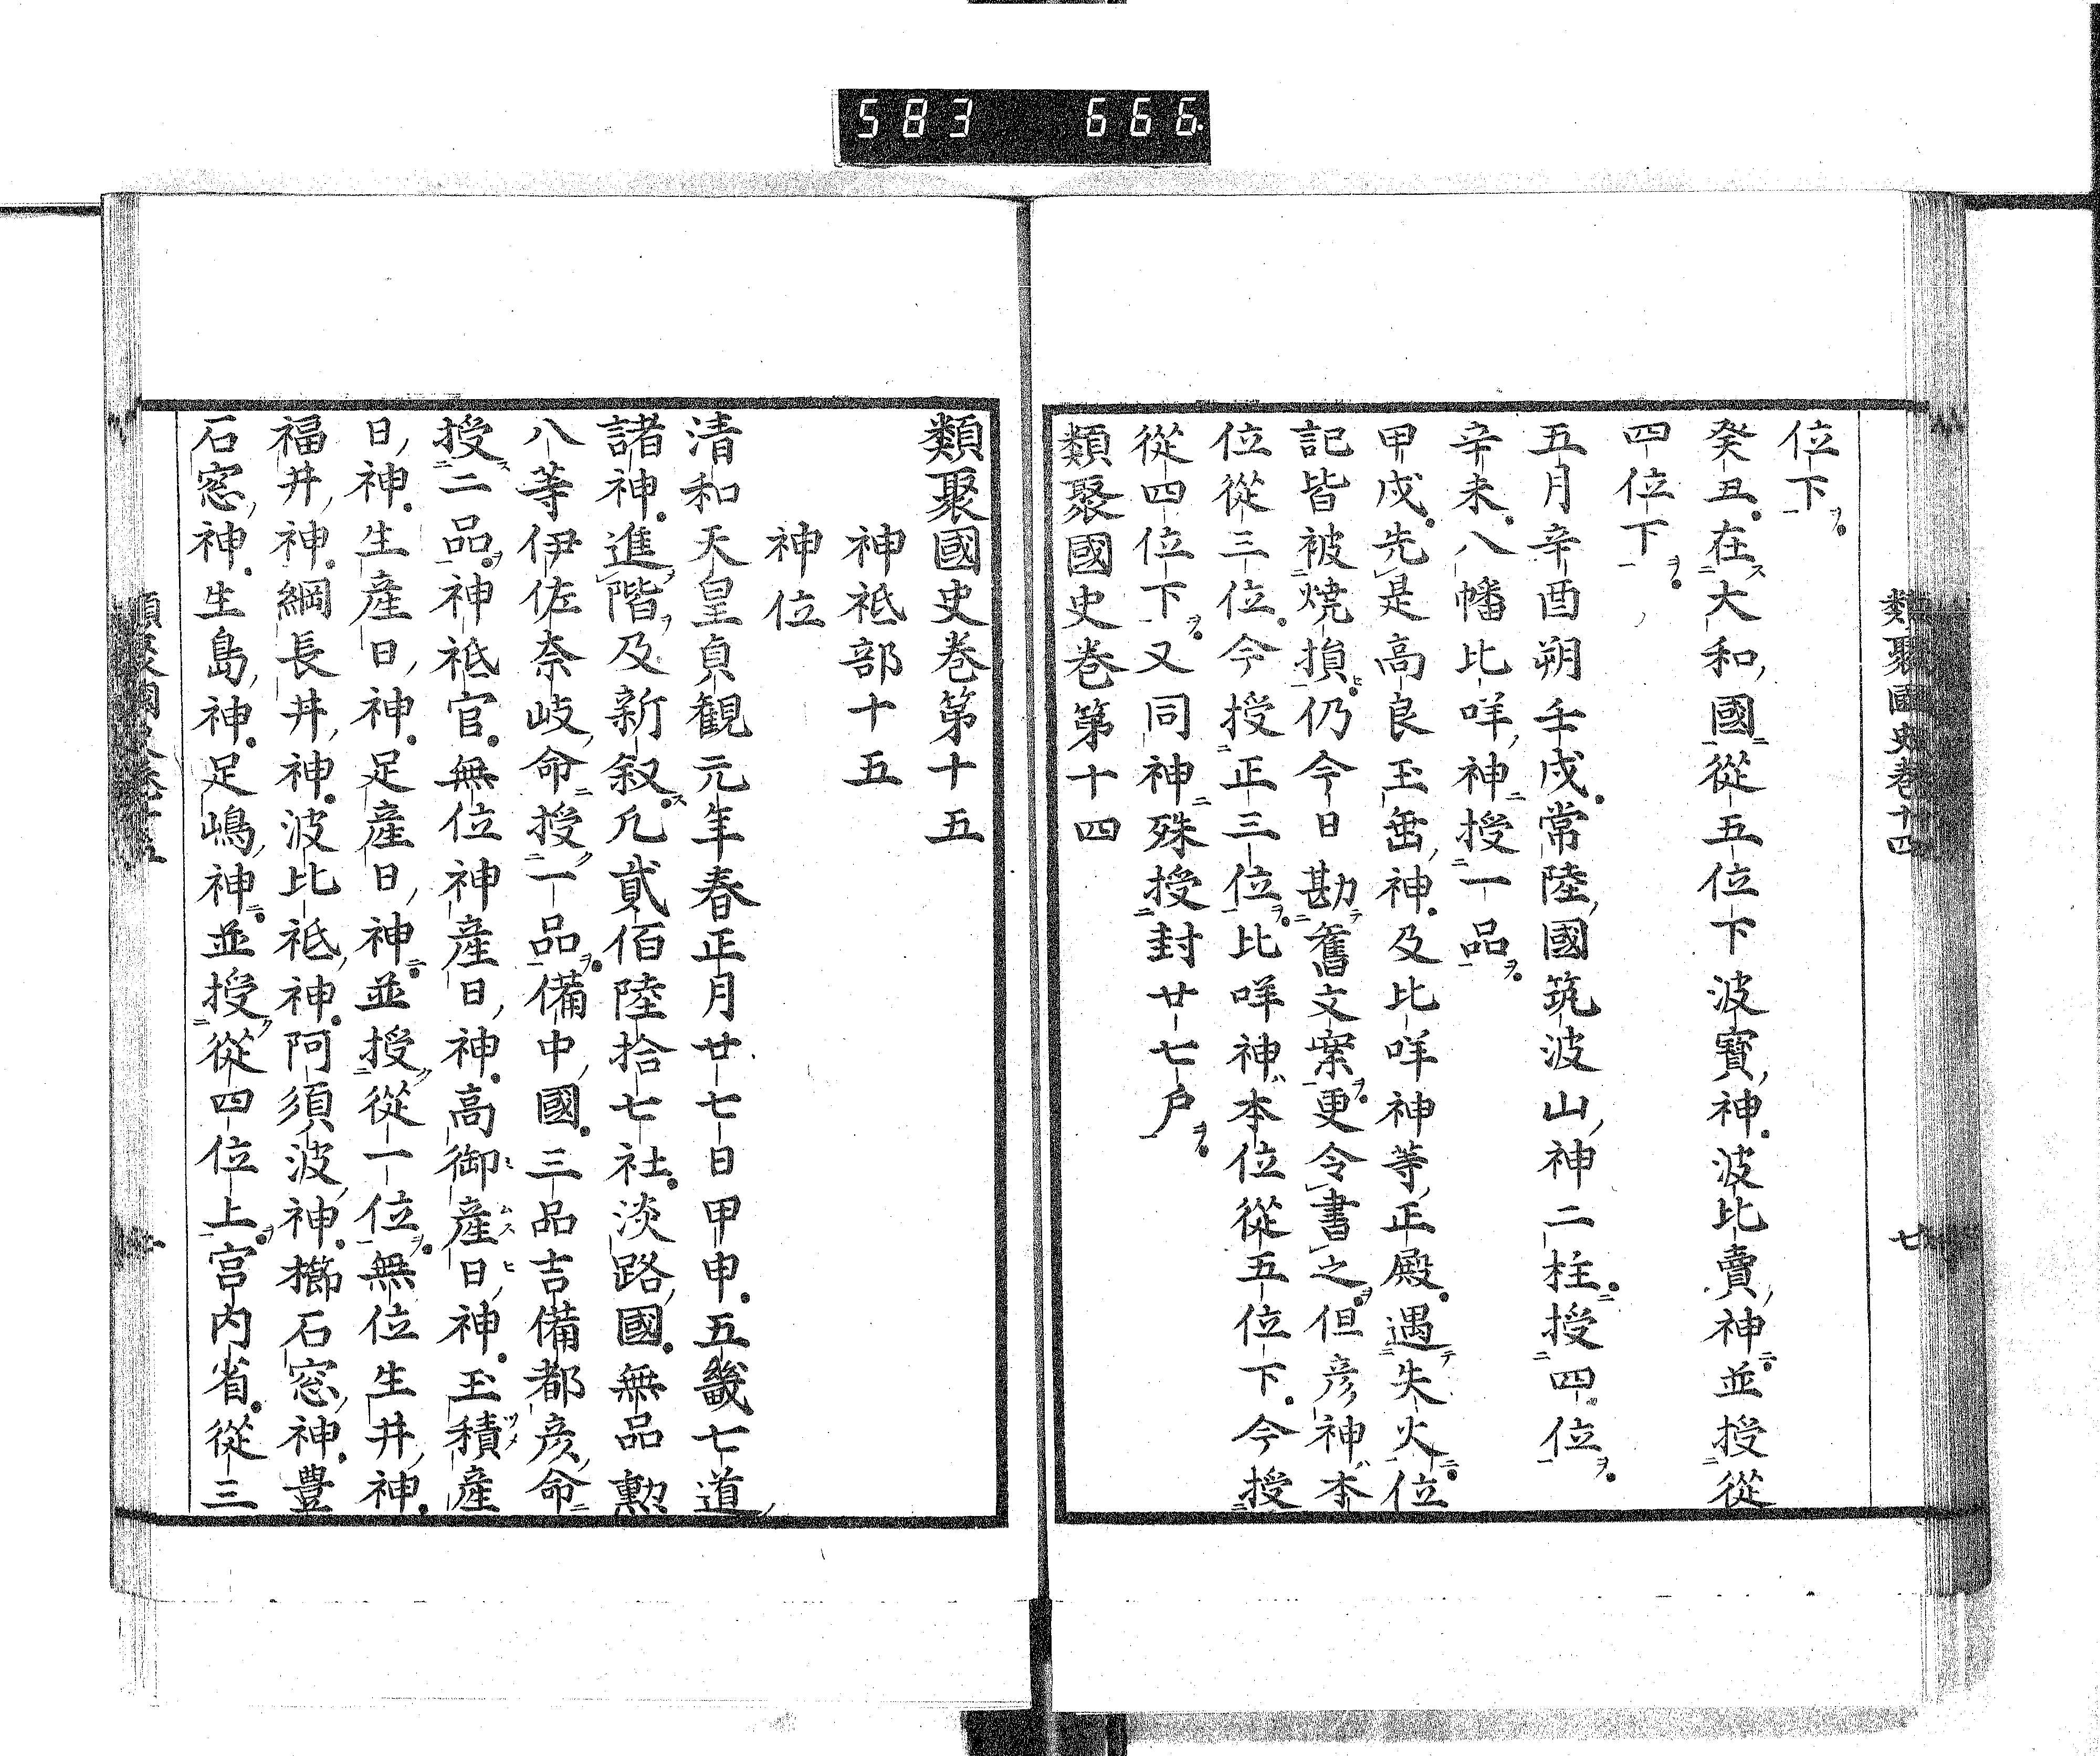 583 666
類聚國史卷十四 廿
位下
癸丑在大和國從五位下波寶神波比賣神並授從
四位下
五月辛酉朔壬戌常陸國筑波山神二柱授四位
辛未八幡比咩神授一品
甲戌先是高良玉垂神及比咩神等正殿遇失火位
記皆被燒損仍今日勘舊文案更令書之但彥神本
位從三位今授正三位比咩神本位從五位下今授
從四位下又同神殊授封廿七戸
類聚國史卷第十四
類聚國史卷第十五
神祗部十五
神位
清和天皇貞観元年春正月廿七日甲申五畿七道
諸神進階及新叙凢貳佰陸拾七社淡路國無品勲
八等伊佐奈岐命授一品備中國三品吉備都彥命
授二品神祗官無位神産日神高御産日神玉積産
日神生産日神足産日神並授從一位無位生井神
福井神綱長井神波比祗神阿須波神櫛石窓神豊
石窓神生島神足嶋神並授從四位上宮内省從三